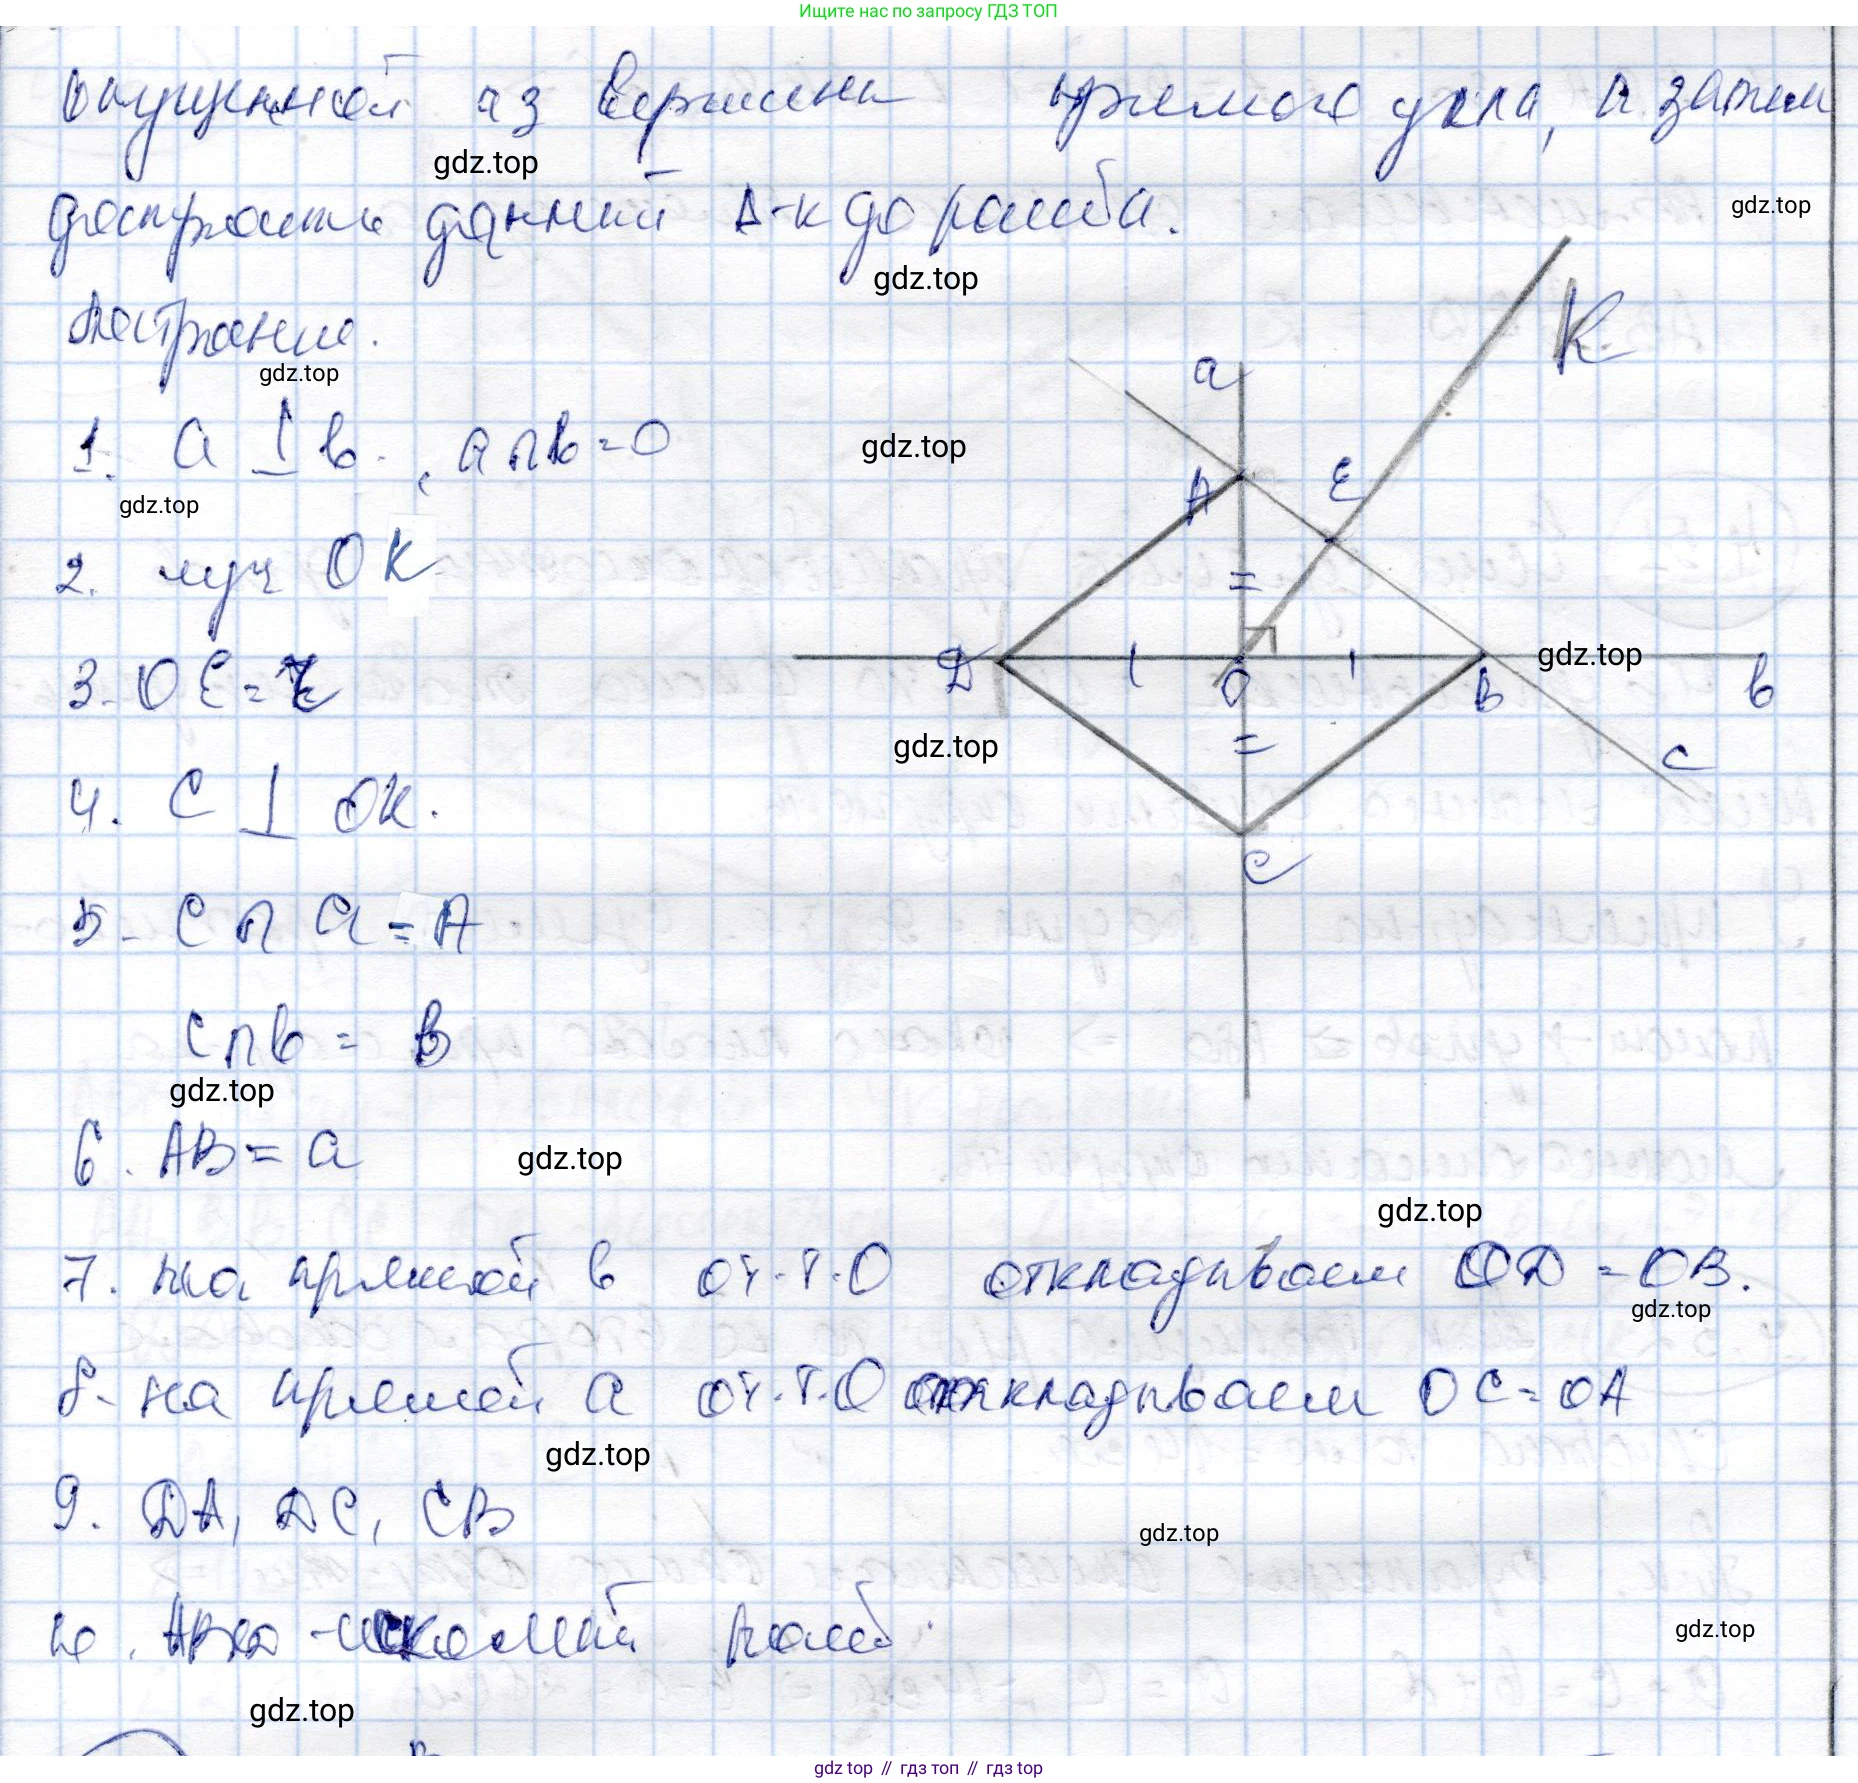 Ищите нас по запросу ГДЗ ТОП
опущенной из вершины прямого угла, а затем
gdz.top
достроить данный Δ-к до ромба.
gdz.top
gdz.top
Построение.
gdz.top
K
a
1. a ⊥ b, a ∩ b = O
gdz.top
A
E
gdz.top
2. луч OK
3. OE = r
D
O
B
gdz.top
b
gdz.top
c
4. c ⊥ OK.
C
5. c ∩ a = A
c ∩ b = B
gdz.top
6. AB = a
gdz.top
gdz.top
7. на прямой b от т. O откладываем OD = OB.
gdz.top
8. на прямой a от т. O откладываем OC = OA
gdz.top
9. DA, DC, CB
gdz.top
10. ABCD - искомый ромб.
gdz.top
gdz.top
gdz top // гдз топ // гдз top